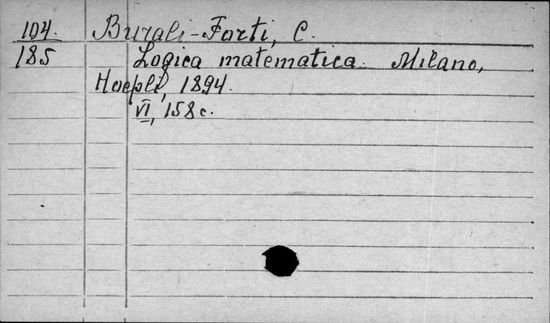 104. Burali-Forti, C.
185 Logica matematica. Milano,
Hoepli, 1894.
VI, 158 c.